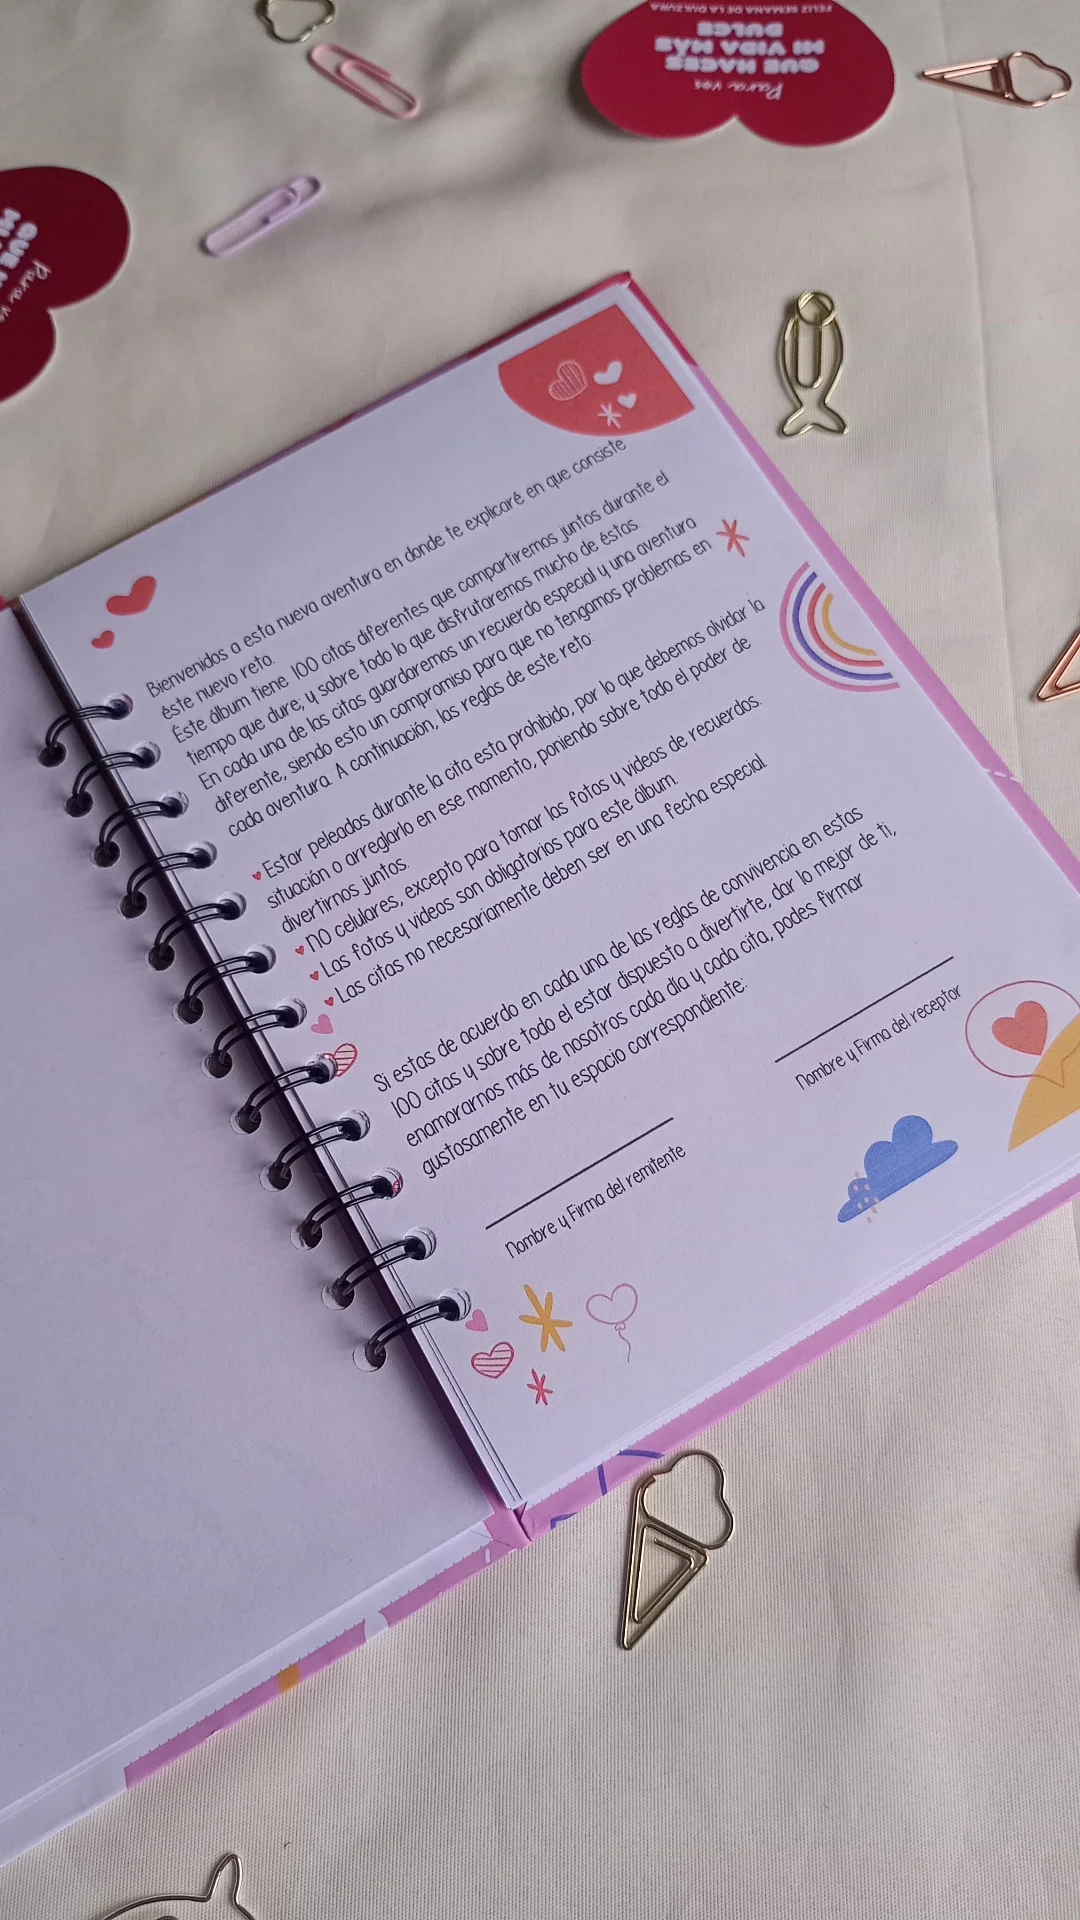 FELIZ SEMANA DE LA DULZURA
DULCE
MI VIDA MÁS
QUE HACES
Para vos
QUE
MI
Para
Bienvenidos a esta nueva aventura en donde te explicaré en que consiste
éste nuevo reto.
Éste álbum tiene 100 citas diferentes que compartiremos juntos durante el
tiempo que dure, y sobre todo lo que disfrutaremos mucho de éstas.
En cada una de las citas guardaremos un recuerdo especial y una aventura
diferente, siendo esto un compromiso para que no tengamos problemas en
cada aventura. A continuación, las reglas de este reto:
Estar peleados durante la cita esta prohibido, por lo que debemos olvidar la
situación o arreglarlo en ese momento, poniendo sobre todo el poder de
divertirnos juntos.
NO celulares, excepto para tomar las fotos y videos de recuerdos.
Las fotos y videos son obligatorios para este álbum.
Las citas no necesariamente deben ser en una fecha especial.
Si estas de acuerdo en cada una de las reglas de convivencia en estas
100 citas y sobre todo el estar dispuesto a divertirte, dar lo mejor de ti,
enamorarnos más de nosotros cada día y cada cita, podes firmar
gustosamente en tu espacio correspondiente:
Nombre y Firma del remitente
Nombre y Firma del receptor